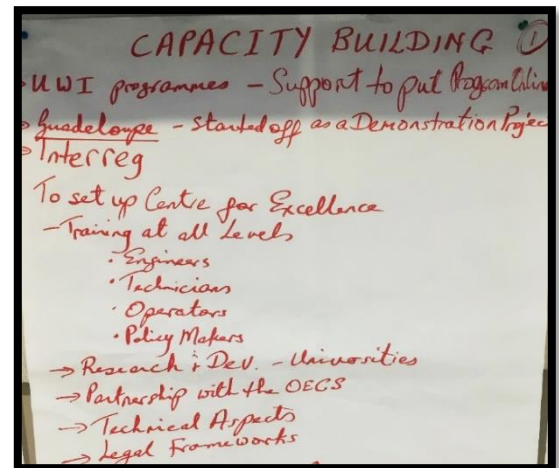 CAPACITY BUILDING 1
UWI programmes - Support to put Program Online
Guadeloupe - Started off as a Demonstration Projec
Interreg
To set up Centre for Excellence
- Training at all Levels
• Engineers
• Technicians
• Operators
• Policy Makers
→ Research & Dev. - Universities
→ Partnership with the OECS
→ Technical Aspects
→ Legal Frameworks